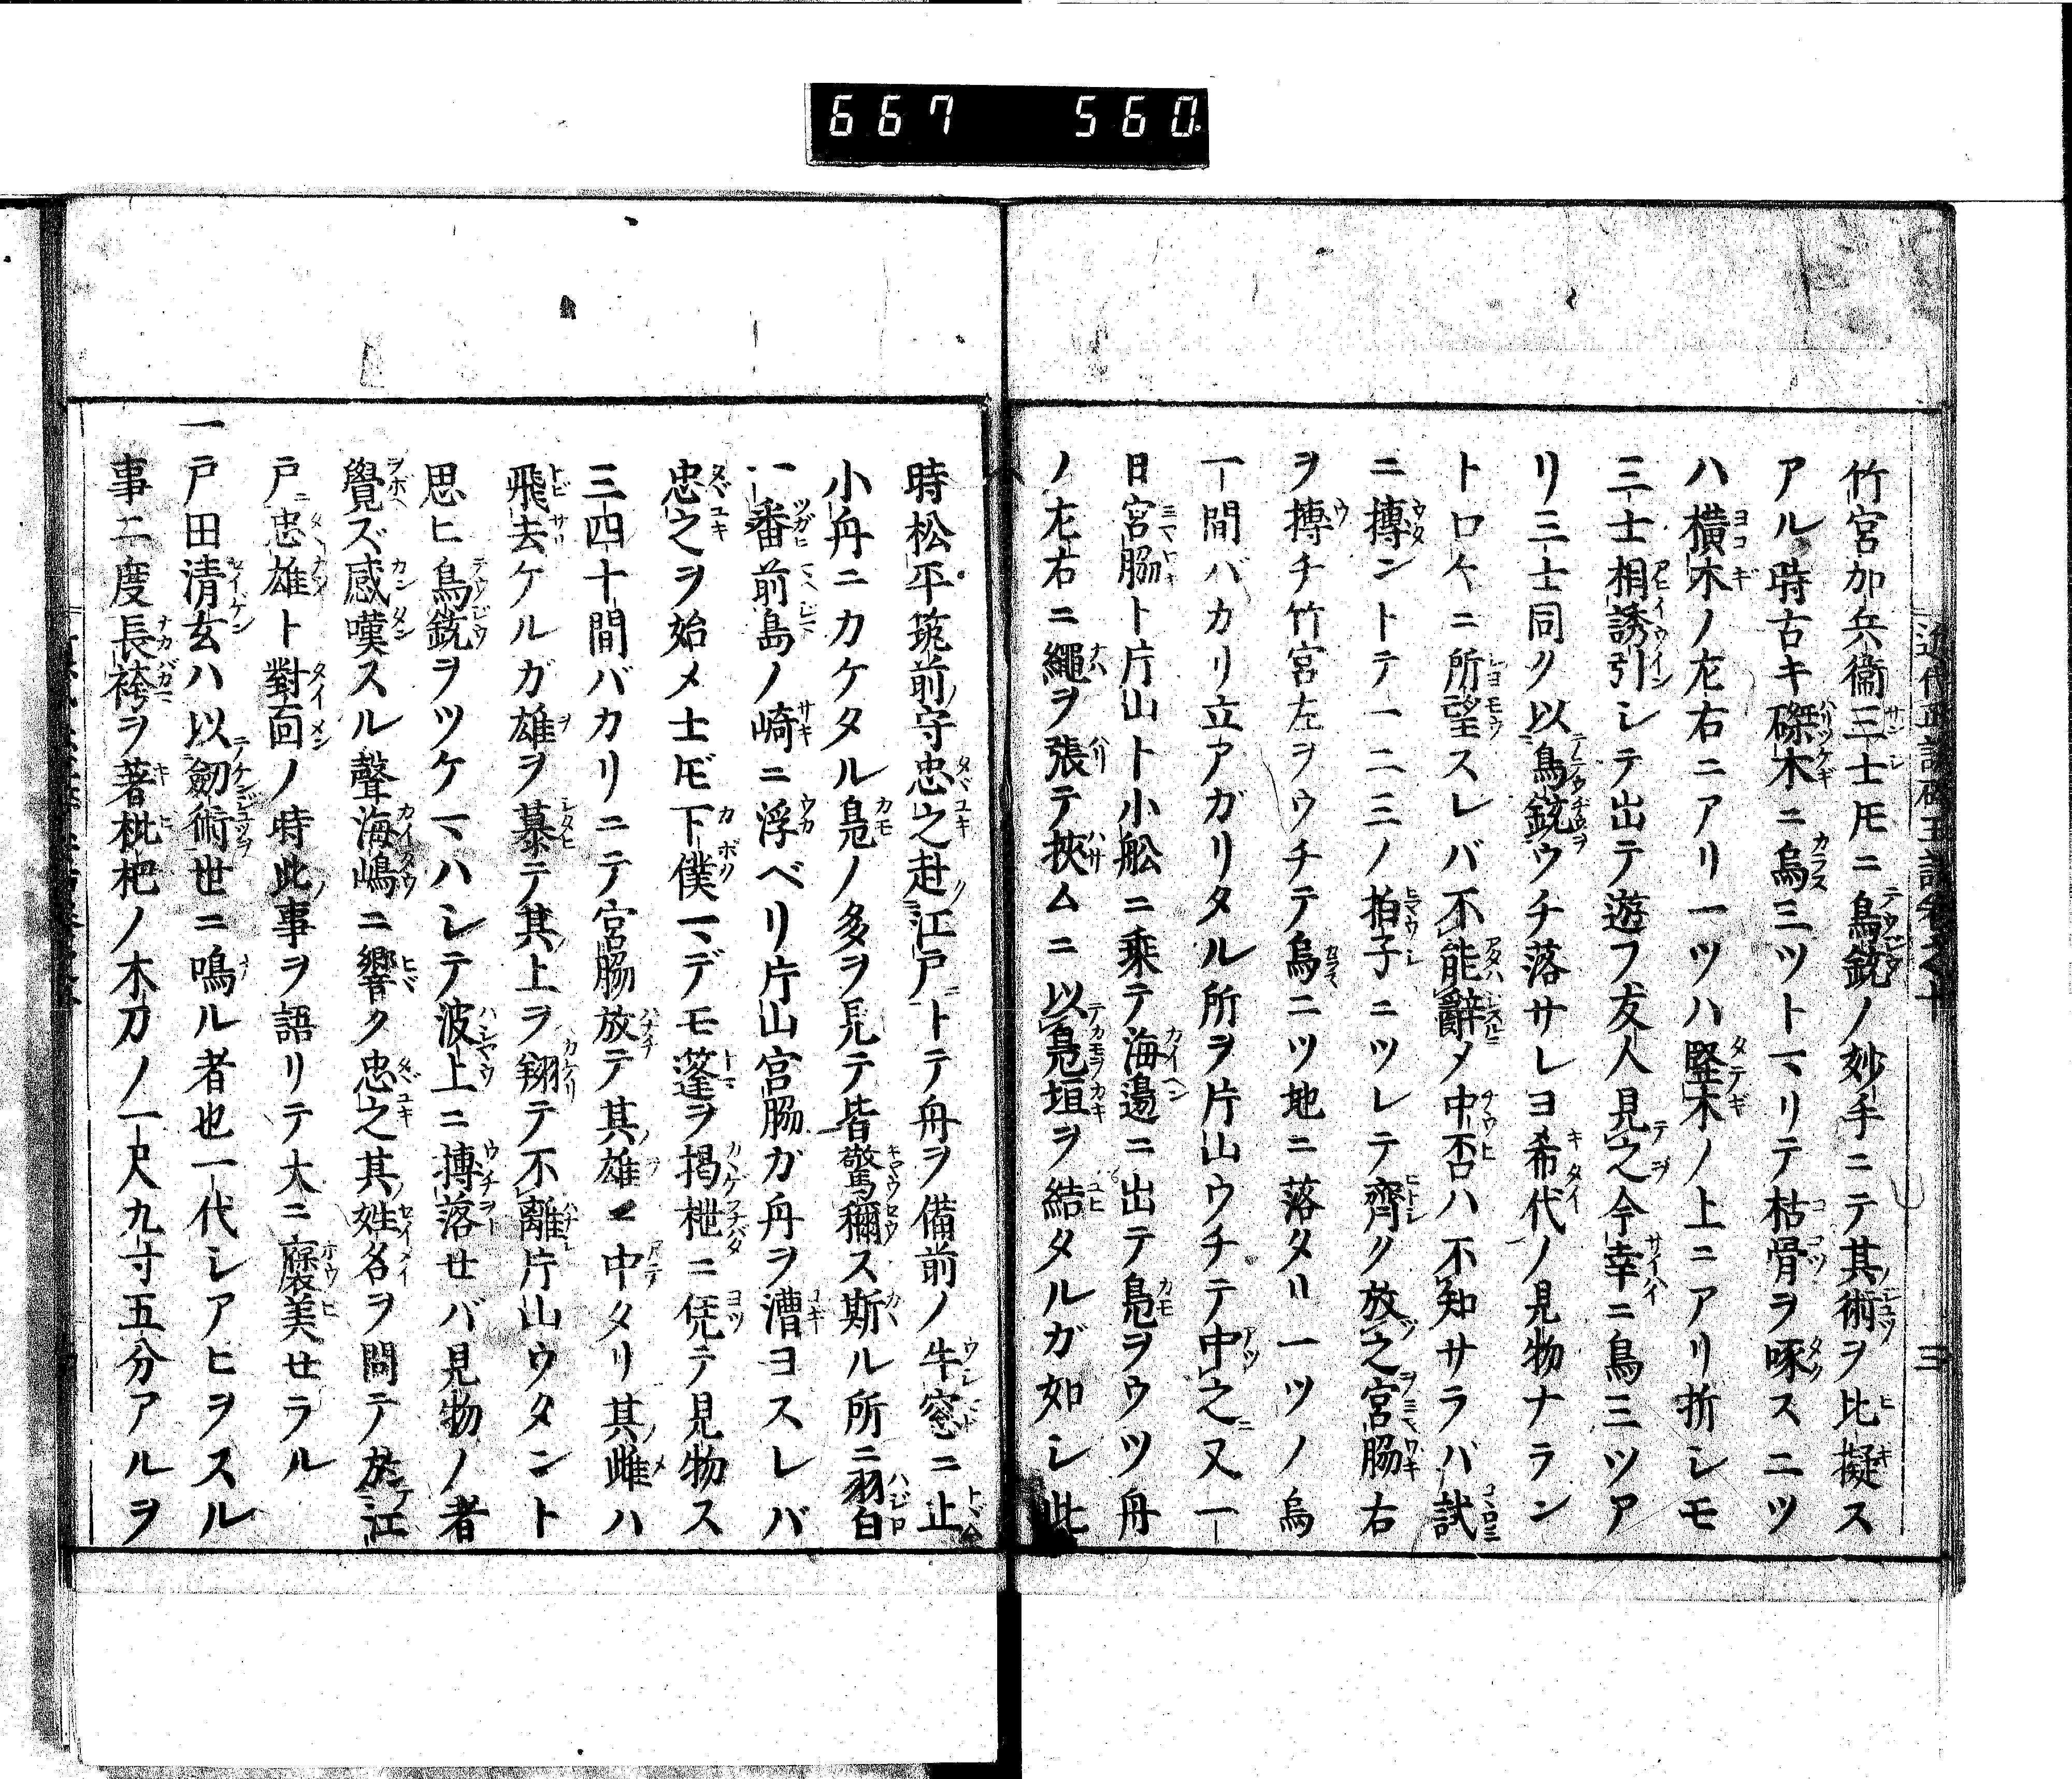 667 560
竹宮加兵衞三士𪜈ニ鳥銃ノ妙手ニテ其術ヲ比擬ス
アル時古キ磔木ニ烏三ツトマリテ枯骨ヲ啄ス二ツ
ハ横木ノ左右ニアリ一ツハ竪木ノ上ニアリ折シモ
三士相誘引シテ出テ遊フ友人見之今幸ニ烏三ツア
リ三士同ク以鳥銃ウチ落サレヨ希代ノ見物ナラン
ト口々ニ所望スレバ不能辭メ中否ハ不知サラバ試
ニ摶ントテ一二三ノ拍子ニツレテ齊ク放之宮脇右
ヲ摶チ竹宮左ヲウチテ烏二ツ地ニ落タリ一ツノ烏
一間バカリ立アガリタル所ヲ片山ウチテ中之又一
日宮脇ト片山ト小舩ニ乗テ海邊ニ出テ鳬ヲウツ舟
ノ左右ニ繩ヲ張テ挾ムニ以鳬垣ヲ結タルガ如シ此
時松平筑前守忠之赴江戸トテ舟ヲ備前ノ牛窓ニ止
小舟ニカケタル鳬ノ多ヲ見テ皆驚稱ス斯ル所ニ羽白
一番前島ノ崎ニ浮ベリ片山宮脇ガ舟ヲ漕ヨスレバ
忠之ヲ始メ士𪜈下僕マデモ蓬ヲ掲枻ニ凭テ見物ス
三四十間バカリニテ宮脇放テ其雄ニ中タリ其雌ハ
飛去ケルガ雄ヲ慕テ其上ヲ翔テ不離片山ウタント
思ヒ鳥銃ヲツケマハシテ波上ニ摶落セバ見物ノ者
覺ズ感嘆スル聲海嶋ニ響ク忠之其姓名ヲ問テ於江
戸忠雄ト對面ノ時此事ヲ語リテ大ニ褒美セラル
一戸田清玄ハ以劒術世ニ鳴ル者也一代シアヒヲスル
事二度長袴ヲ著枇杷ノ木刀ノ一尺九寸五分アルヲ